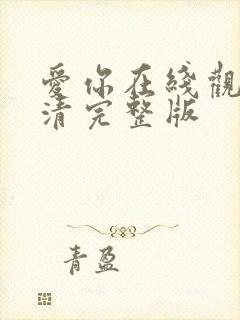 愛你在线觀
清完整版
青盈